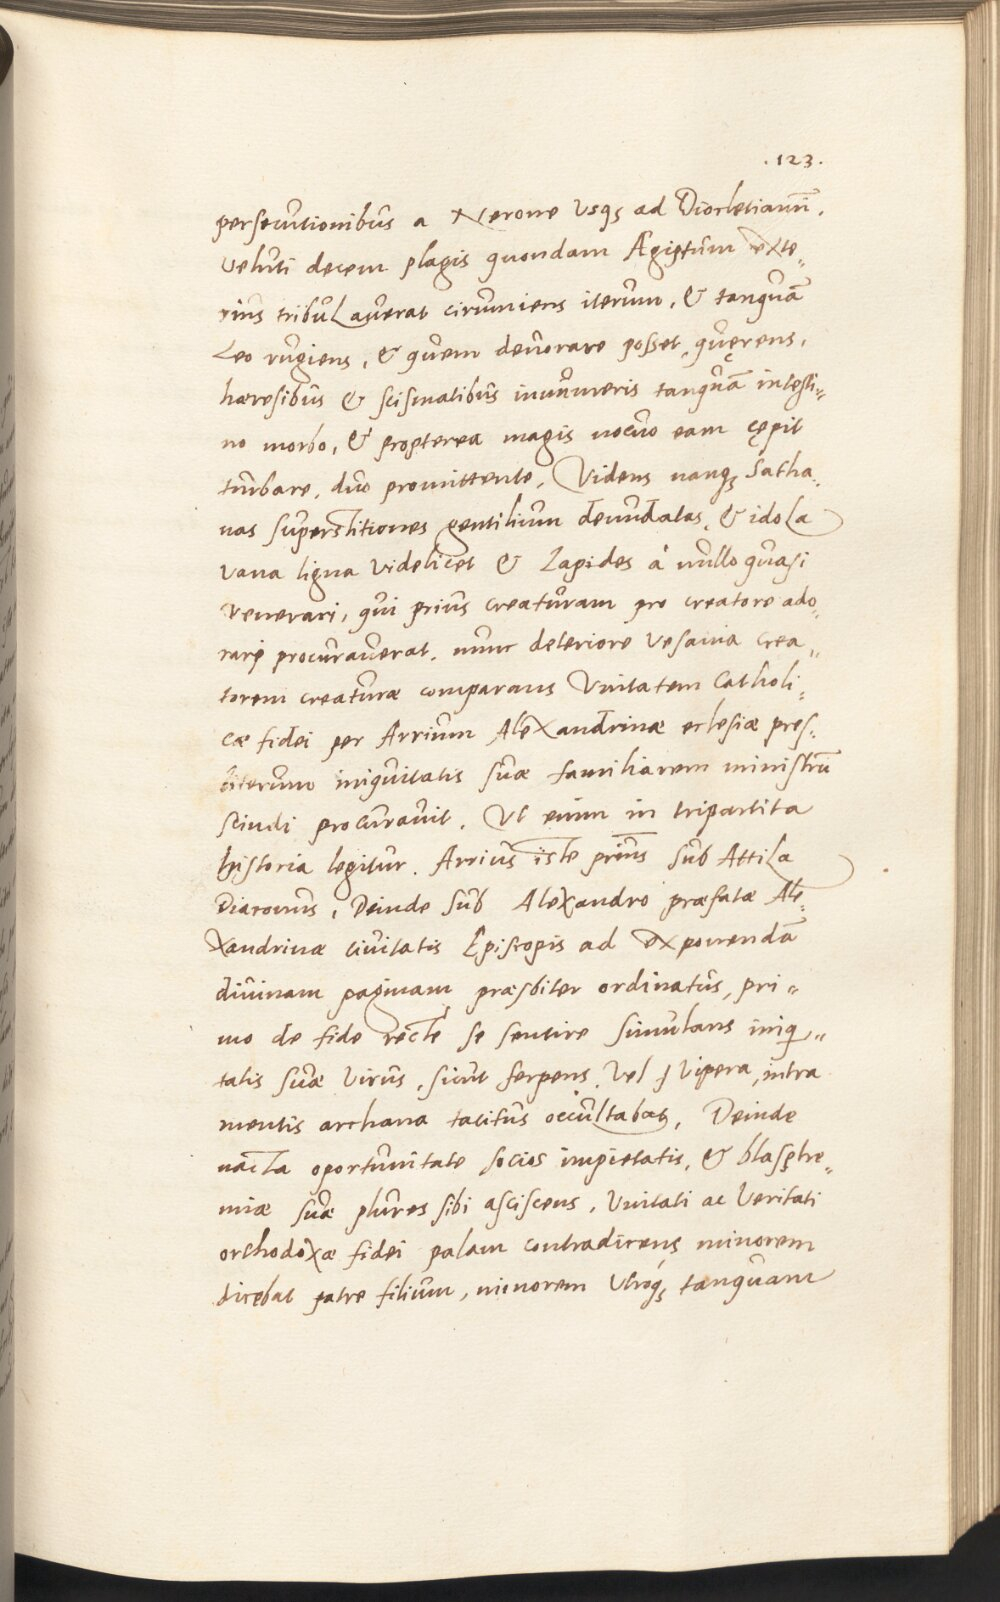 .123.
persecutionibus a Nerone Usq₃ ad Diocletianū.
Veluti decem plagis quondam Ægiptum exte„
rius tribulaverat circumiens iterum, & tanquā
Leo rugiens, & quem devorare posset, quęrens,
hæresibus & scismatibus innumeris tanquā intesti„
no morbo, & propterea magis nocuo eam cępit
turbare, dn̄o promittente, Videns nanq₃ Satha„
nas superstitiones gentilium denudatas, & idola
vana ligna videlicet & lapides á nullo quasi
Venerari, qui prius creaturam pro creatore ado„
rarj procuraverat. nunc deteriore Vesania crea„
torem creaturæ comparans Unitatem Catholi„
cæ fidei per Arrium Alexandrinæ eclesiæ pres„
biterum iniquitatis suæ familiarem ministrū
scindi procuravit. Ut enim in tripartita
historia legitur. Arrius iste primus sub Attila
Diaconus, Deinde sub Alexandro præfatæ Ale„
xandrinæ civitatis Episcopis ad exponendā
divinam paginam præsbiter ordinatus, pri„
mo de fide recte se sentire simulans iniqui„
tatis suæ virus, sicut serpens, Vel ſ Vipera, intra
mentis archana tacitus occultabat, Deinde
nacta oportunitate socios impietatis, & blasphe„
miæ suæ plures sibi asciscens, Unitati ac Veritati
orthodoxæ fidei palam contradicens minorem
dicebat patre filium, minorem Utroq₃ tanquam